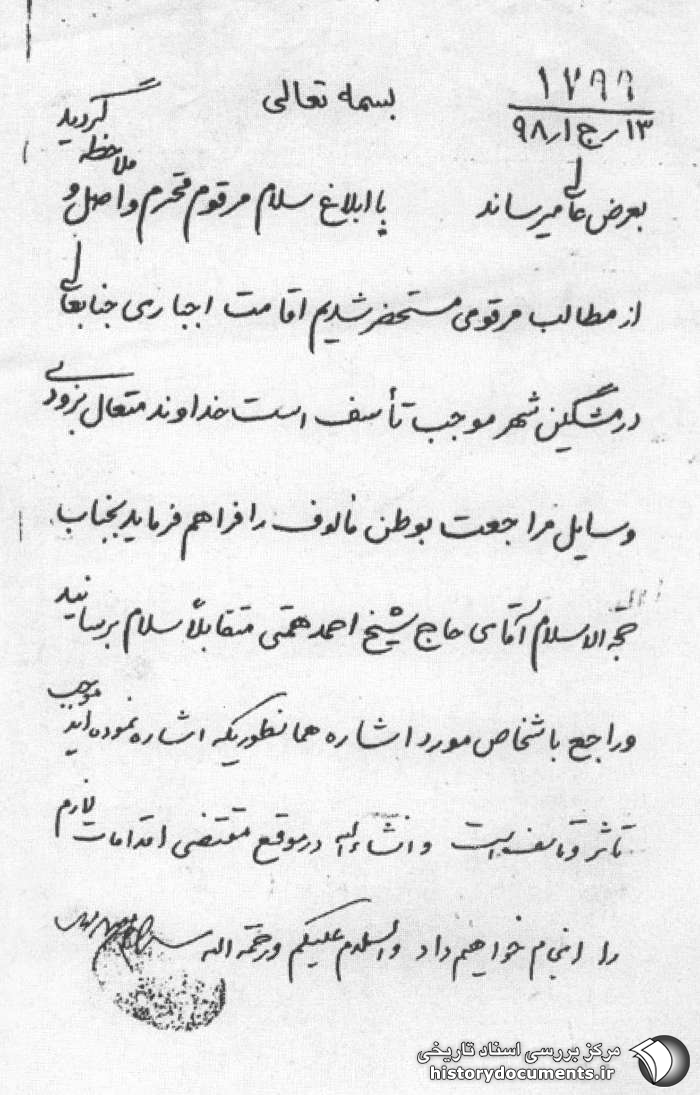 بسمه تعالی
۱۷۹۹
۱۳ ر ج ۱ ر ۹۸
بعرض عالی میرساند با ابلاغ سلام مرقوم محترم واصل و ملاحظه گردید
از مطالب مرقومی مستحضر شدیم اقامت اجباری جنابعالی
در مشگین شهر موجب تأسف است خداوند متعال بزودی
وسایل مراجعت بوطن مالوف را فراهم فرماید بجناب
حجة الاسلام آقای حاج شیخ احمد همتی متقابلاً سلام برسانید
و راجع باشخاص مورد اشاره همانطوریکه اشاره نموده‌اید موجب
تاثر و تاسف است و انشاءالله در موقع مقتضی اقدامات لازم
را انجام خواهیم داد والسلام علیکم و رحمة الله
مرکز بررسی اسناد تاریخی
historydocuments.ir